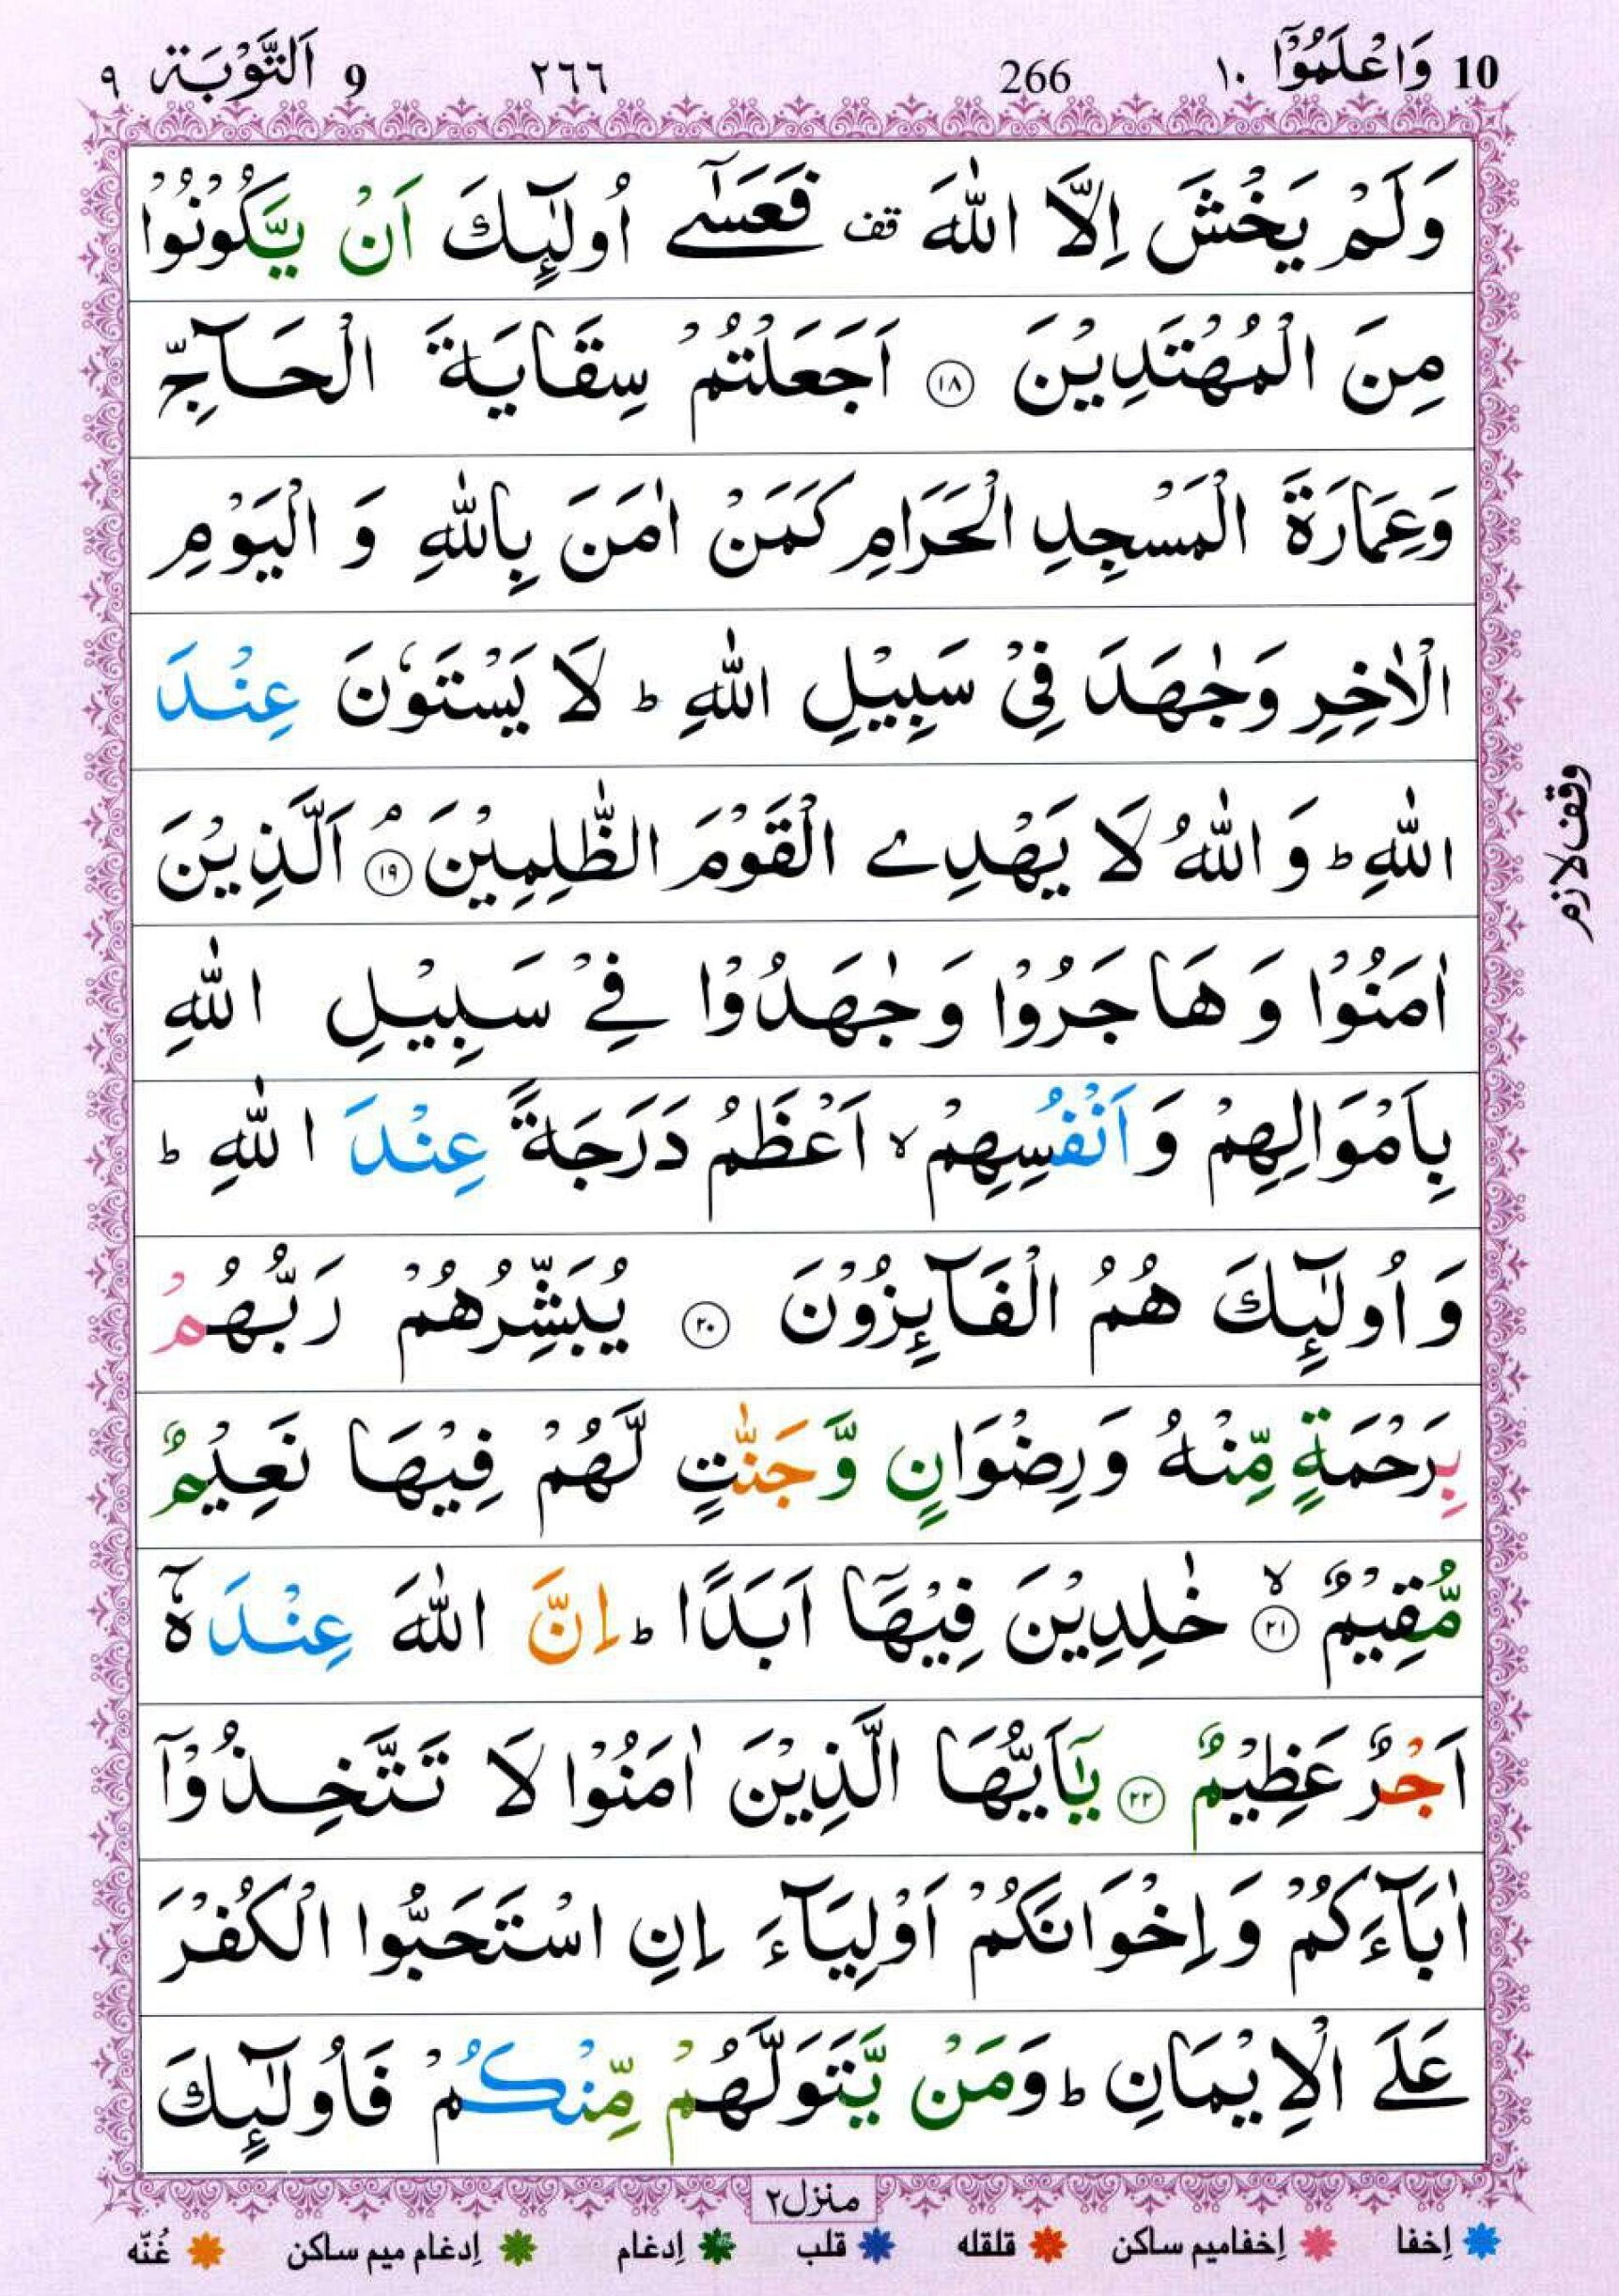 10 وَاعْلَمُوْۤا ١٠ 266 ٢٦٦ 9 اَلتَّوْبَة ٩
وَلَمْ يَخْشَ اِلَّا اللّٰهَ قف فَعَسٰۤے اُولٰٓئِكَ اَنْ يَّكُوْنُوْا
مِنَ الْمُهْتَدِيْنَ ١٨ اَجَعَلْتُمْ سِقَايَةَ الْحَآجِّ
وَعِمَارَةَ الْمَسْجِدِ الْحَرَامِ كَمَنْ اٰمَنَ بِاللّٰهِ وَ الْيَوْمِ
الْاٰخِرِ وَجٰهَدَ فِيْ سَبِيْلِ اللّٰهِ ؕ لَا يَسْتَوٗنَ عِنْدَ
اللّٰهِ ؕ وَ اللّٰهُ لَا يَهْدِے الْقَوْمَ الظّٰلِمِيْنَ ۘ ١٩ اَلَّذِيْنَ
وقف لازم
اٰمَنُوْا وَ هَاجَرُوْا وَ جٰهَدُوْا فِےْ سَبِيْلِ اللّٰهِ
بِاَمْوَالِهِمْ وَ اَنْفُسِهِمْ ۙ اَعْظَمُ دَرَجَةً عِنْدَ اللّٰهِ ؕ
وَ اُولٰٓئِكَ هُمُ الْفَآئِزُوْنَ ٢٠ يُبَشِّرُهُمْ رَبُّهُمْ
بِرَحْمَةٍ مِّنْهُ وَرِضْوَانٍ وَّ جَنّٰتٍ لَّهُمْ فِيْهَا نَعِيْمٌ
مُّقِيْمٌ ۙ ٢١ خٰلِدِيْنَ فِيْهَاۤ اَبَدًا ؕ اِنَّ اللّٰهَ عِنْدَهٗۤ
اَجْرٌ عَظِيْمٌ ٢٢ يٰۤاَيُّهَا الَّذِيْنَ اٰمَنُوْا لَا تَتَّخِذُوْۤا
اٰبَآءَكُمْ وَ اِخْوَانَكُمْ اَوْلِيَآءَ اِنِ اسْتَحَبُّوا الْكُفْرَ
عَلَے الْاِيْمَانِ ؕ وَمَنْ يَّتَوَلَّهُمْ مِّنْكُمْ فَاُولٰٓئِكَ
منزل ٢
إخفا إخفامیم ساکن قلقله قلب إدغام إدغام میم ساکن غُنّه